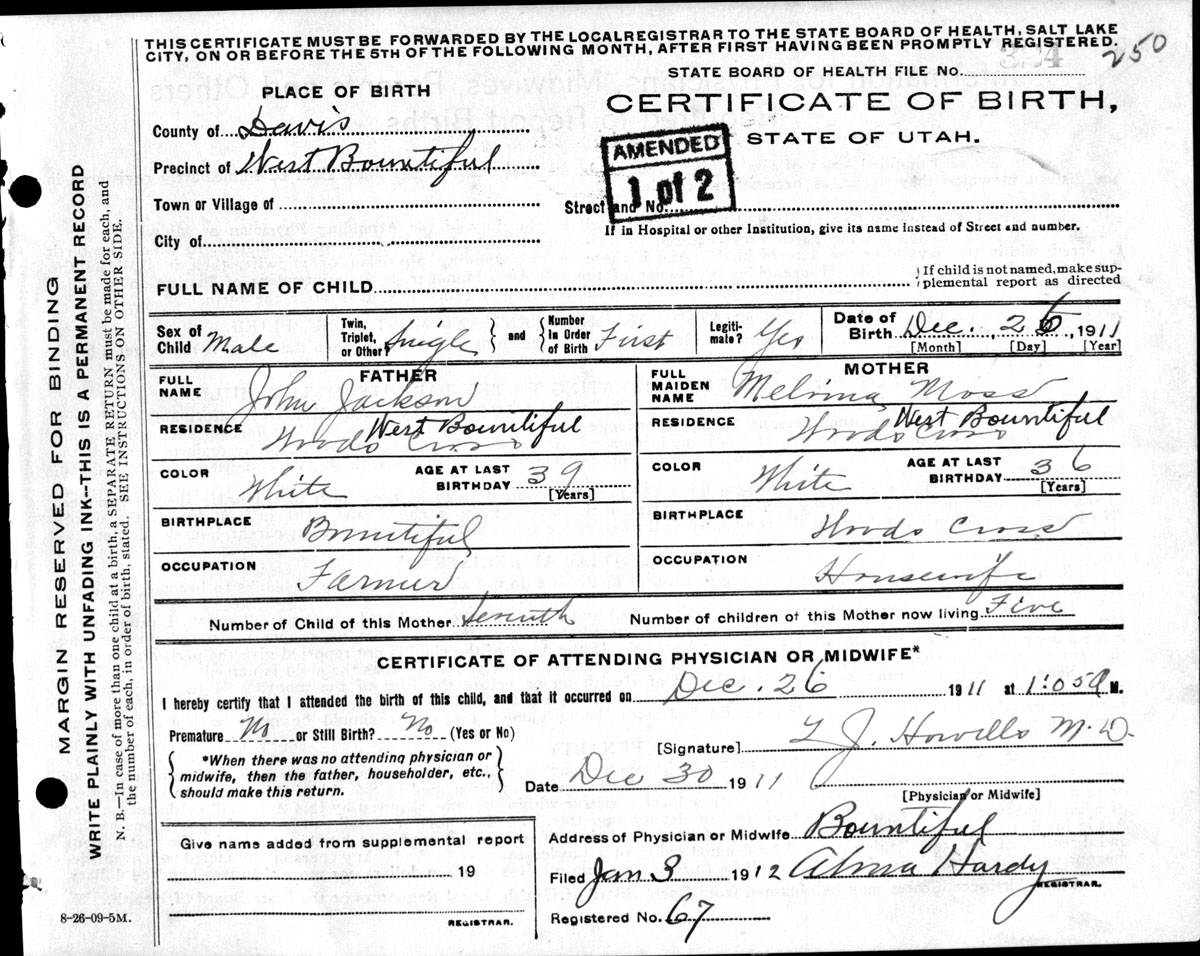 THIS CERTIFICATE MUST BE FORWARDED BY THE LOCAL REGISTRAR TO THE STATE BOARD OF HEALTH, SALT LAKE
CITY, ON OR BEFORE THE 5TH OF THE FOLLOWING MONTH, AFTER FIRST HAVING BEEN PROMPTLY REGISTERED.
250
STATE BOARD OF HEALTH FILE NO. 324
PLACE OF BIRTH
CERTIFICATE OF BIRTH,
STATE OF UTAH.
County of Davis
Precinct of West Bountiful
AMENDED
1 of 2
Town or Village of
Street and No.
City of
If in Hospital or other Institution, give its name instead of Street and number.
FULL NAME OF CHILD
If child is not named, make sup-
plemental report as directed
Sex of Child Male
Twin, Triplet, or Other? Single and Number In Order of Birth First
Legiti-mate? Yes
Date of Birth Dec. 26 1911
[Month] [Day] [Year]
FATHER
FULL NAME John Jackson
RESIDENCE Woods Cross West Bountiful
COLOR White AGE AT LAST BIRTHDAY 39 [Years]
BIRTHPLACE Bountiful
OCCUPATION Farmer
MOTHER
FULL MAIDEN NAME Melvina Moss
RESIDENCE Woods Cross West Bountiful
COLOR White AGE AT LAST BIRTHDAY 36 [Years]
BIRTHPLACE Woods Cross
OCCUPATION Housewife
Number of Child of this Mother Seventh Number of children of this Mother now living Five
CERTIFICATE OF ATTENDING PHYSICIAN OR MIDWIFE*
I hereby certify that I attended the birth of this child, and that it occurred on Dec. 26 1911 at 1:05 A M.
Premature No or Still Birth? No (Yes or No)
*When there was no attending physician or
midwife, then the father, householder, etc.,
should make this return.
[Signature] J. Howells M.D.
Date Dec 30 1911
[Physician or Midwife]
Give name added from supplemental report
19
REGISTRAR.
Address of Physician or Midwife Bountiful
Filed Jan 3 1912 Alma Hardy
REGISTRAR.
Registered No. 67
8-26-09-5M.
MARGIN RESERVED FOR BINDING
WRITE PLAINLY WITH UNFADING INK--THIS IS A PERMANENT RECORD
N. B.--In case of more than one child at a birth, a SEPARATE RETURN must be made for each, and
the number of each, in order of birth, stated. SEE INSTRUCTIONS ON OTHER SIDE.